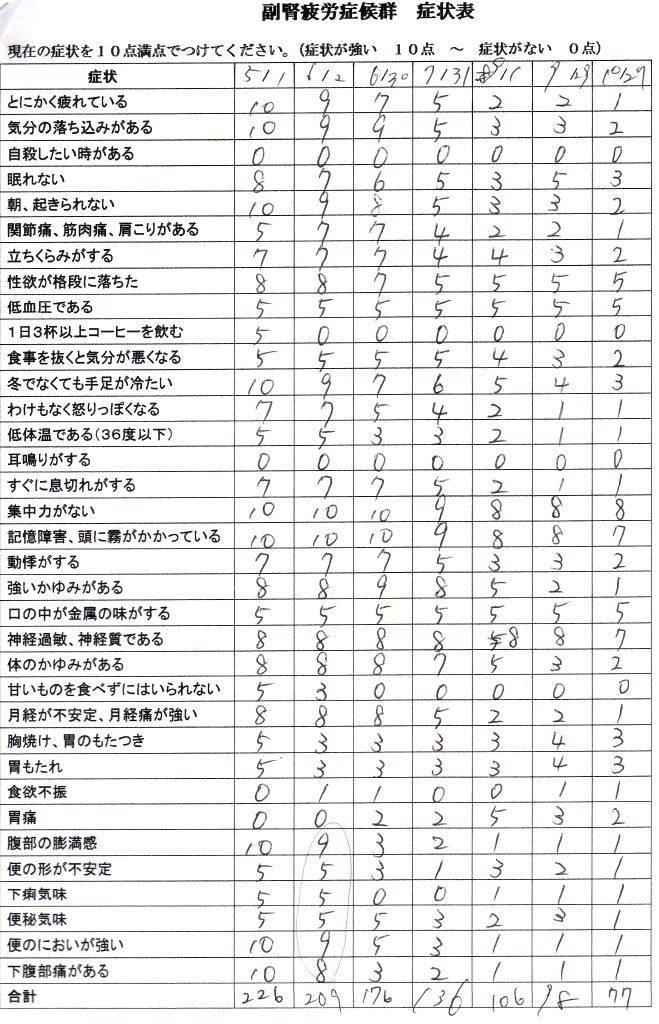 副腎疲労症候群　症状表
現在の症状を１０点満点でつけてください。(症状が強い　１０点　～　症状がない　０点)
症状 5/1 6/2 6/30 7/31 9/29 10/29
とにかく疲れている 10 9 7 5 2 2 1
気分の落ち込みがある 10 9 9 5 3 3 2
自殺したい時がある 0 0 0 0 0 0 0
眠れない 8 7 6 5 3 5 3
朝、起きられない 10 9 8 5 3 3 2
関節痛、筋肉痛、肩こりがある 5 7 7 4 2 2 1
立ちくらみがする 7 7 7 4 4 3 2
性欲が格段に落ちた 8 8 7 5 5 5 5
低血圧である 5 5 5 5 5 5 5
１日３杯以上コーヒーを飲む 5 0 0 0 0 0 0
食事を抜くと気分が悪くなる 5 5 5 5 4 3 2
冬でなくても手足が冷たい 10 9 7 6 5 4 3
わけもなく怒りっぽくなる 7 7 5 4 2 1 1
低体温である(３６度以下) 5 5 3 3 2 1 1
耳鳴りがする 0 0 0 0 0 0 0
すぐに息切れがする 7 7 7 5 2 1 1
集中力がない 10 10 10 9 8 8 8
記憶障害、頭に霧がかかっている 10 10 10 9 8 8 7
動悸がする 7 7 7 5 3 3 2
強いかゆみがある 8 8 9 8 5 2 1
口の中が金属の味がする 5 5 5 5 5 5 5
神経過敏、神経質である 8 8 8 8 8 8 7
体のかゆみがある 8 8 8 7 5 3 2
甘いものを食べずにはいられない 5 3 0 0 0 0 0
月経が不安定、月経痛が強い 8 8 8 5 2 2 1
胸焼け、胃のもたつき 5 3 3 3 3 4 3
胃もたれ 5 3 3 3 3 4 3
食欲不振 0 1 1 0 0 1 1
胃痛 0 0 2 2 5 3 2
腹部の膨満感 10 9 3 2 1 1 1
便の形が不安定 5 5 3 1 3 2 1
下痢気味 5 5 0 0 1 1 1
便秘気味 5 5 5 3 2 3 1
便のにおいが強い 10 9 5 3 1 1 1
下腹部痛がある 10 8 3 2 1 1 1
合計 226 209 176 136 106 98 77